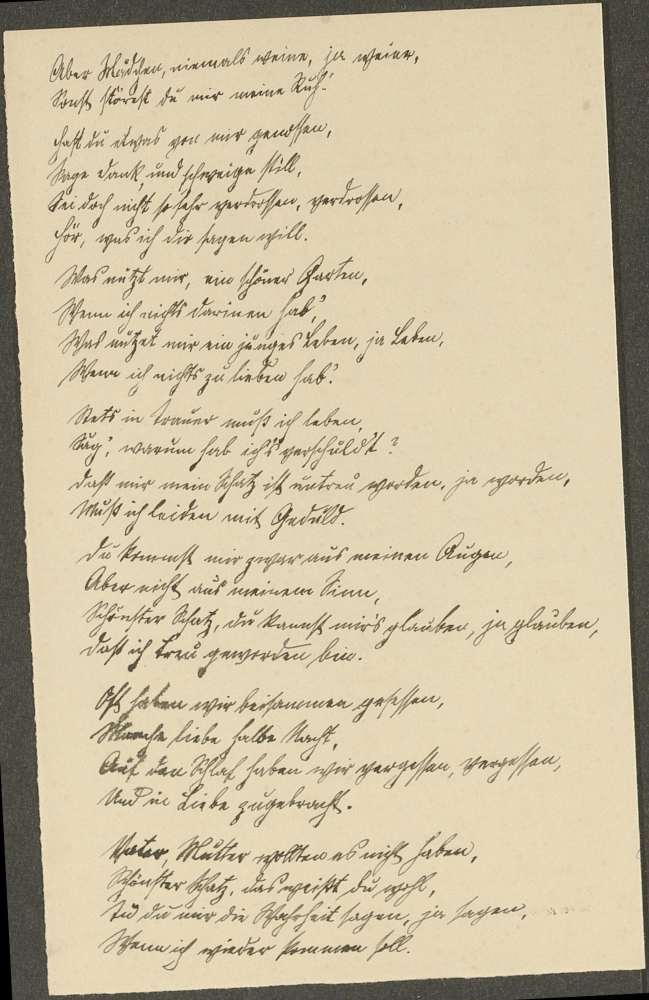 Aber Mädchen, niemals weine, ja weine,
Sonst störest du mir meine Ruh!
Hast du etwas von mir genossen,
Sage Dank und schweige still,
Sei doch nicht so sehr verdrossen, verdrossen,
Hör, was ich dir sagen will.
Was nützt mir, ein schöner Garten,
Wenn ich nichts darinen hab',
Was nützet mir ein junges Leben, ja Leben,
Wenn ich nichts zu lieben hab'.
Stets in Trauer muß ich leben,
Sag', warum hab ich's verschuld't?
Daß mir mein Schatz ist untreu worden, ja worden,
Muß ich leiden mit Geduld.
Du kommst mir zwar aus meinen Augen,
Aber nicht aus meinem Sinn,
Schönster Schatz, du kannst mir's glauben, ja glauben,
Daß ich treu geworden bin.
Oft haben wir beisammen gesessen,
Manche liebe halbe Nacht,
Auf den Schlaf haben wir vergessen, vergessen,
Und in Liebe zugebracht.
Vater, Mutter wollten es nicht haben,
Schönster Schatz, das weißt du wohl,
Tu du mir die Wahrheit sagen, ja sagen,
Wenn ich wieder kommen soll.